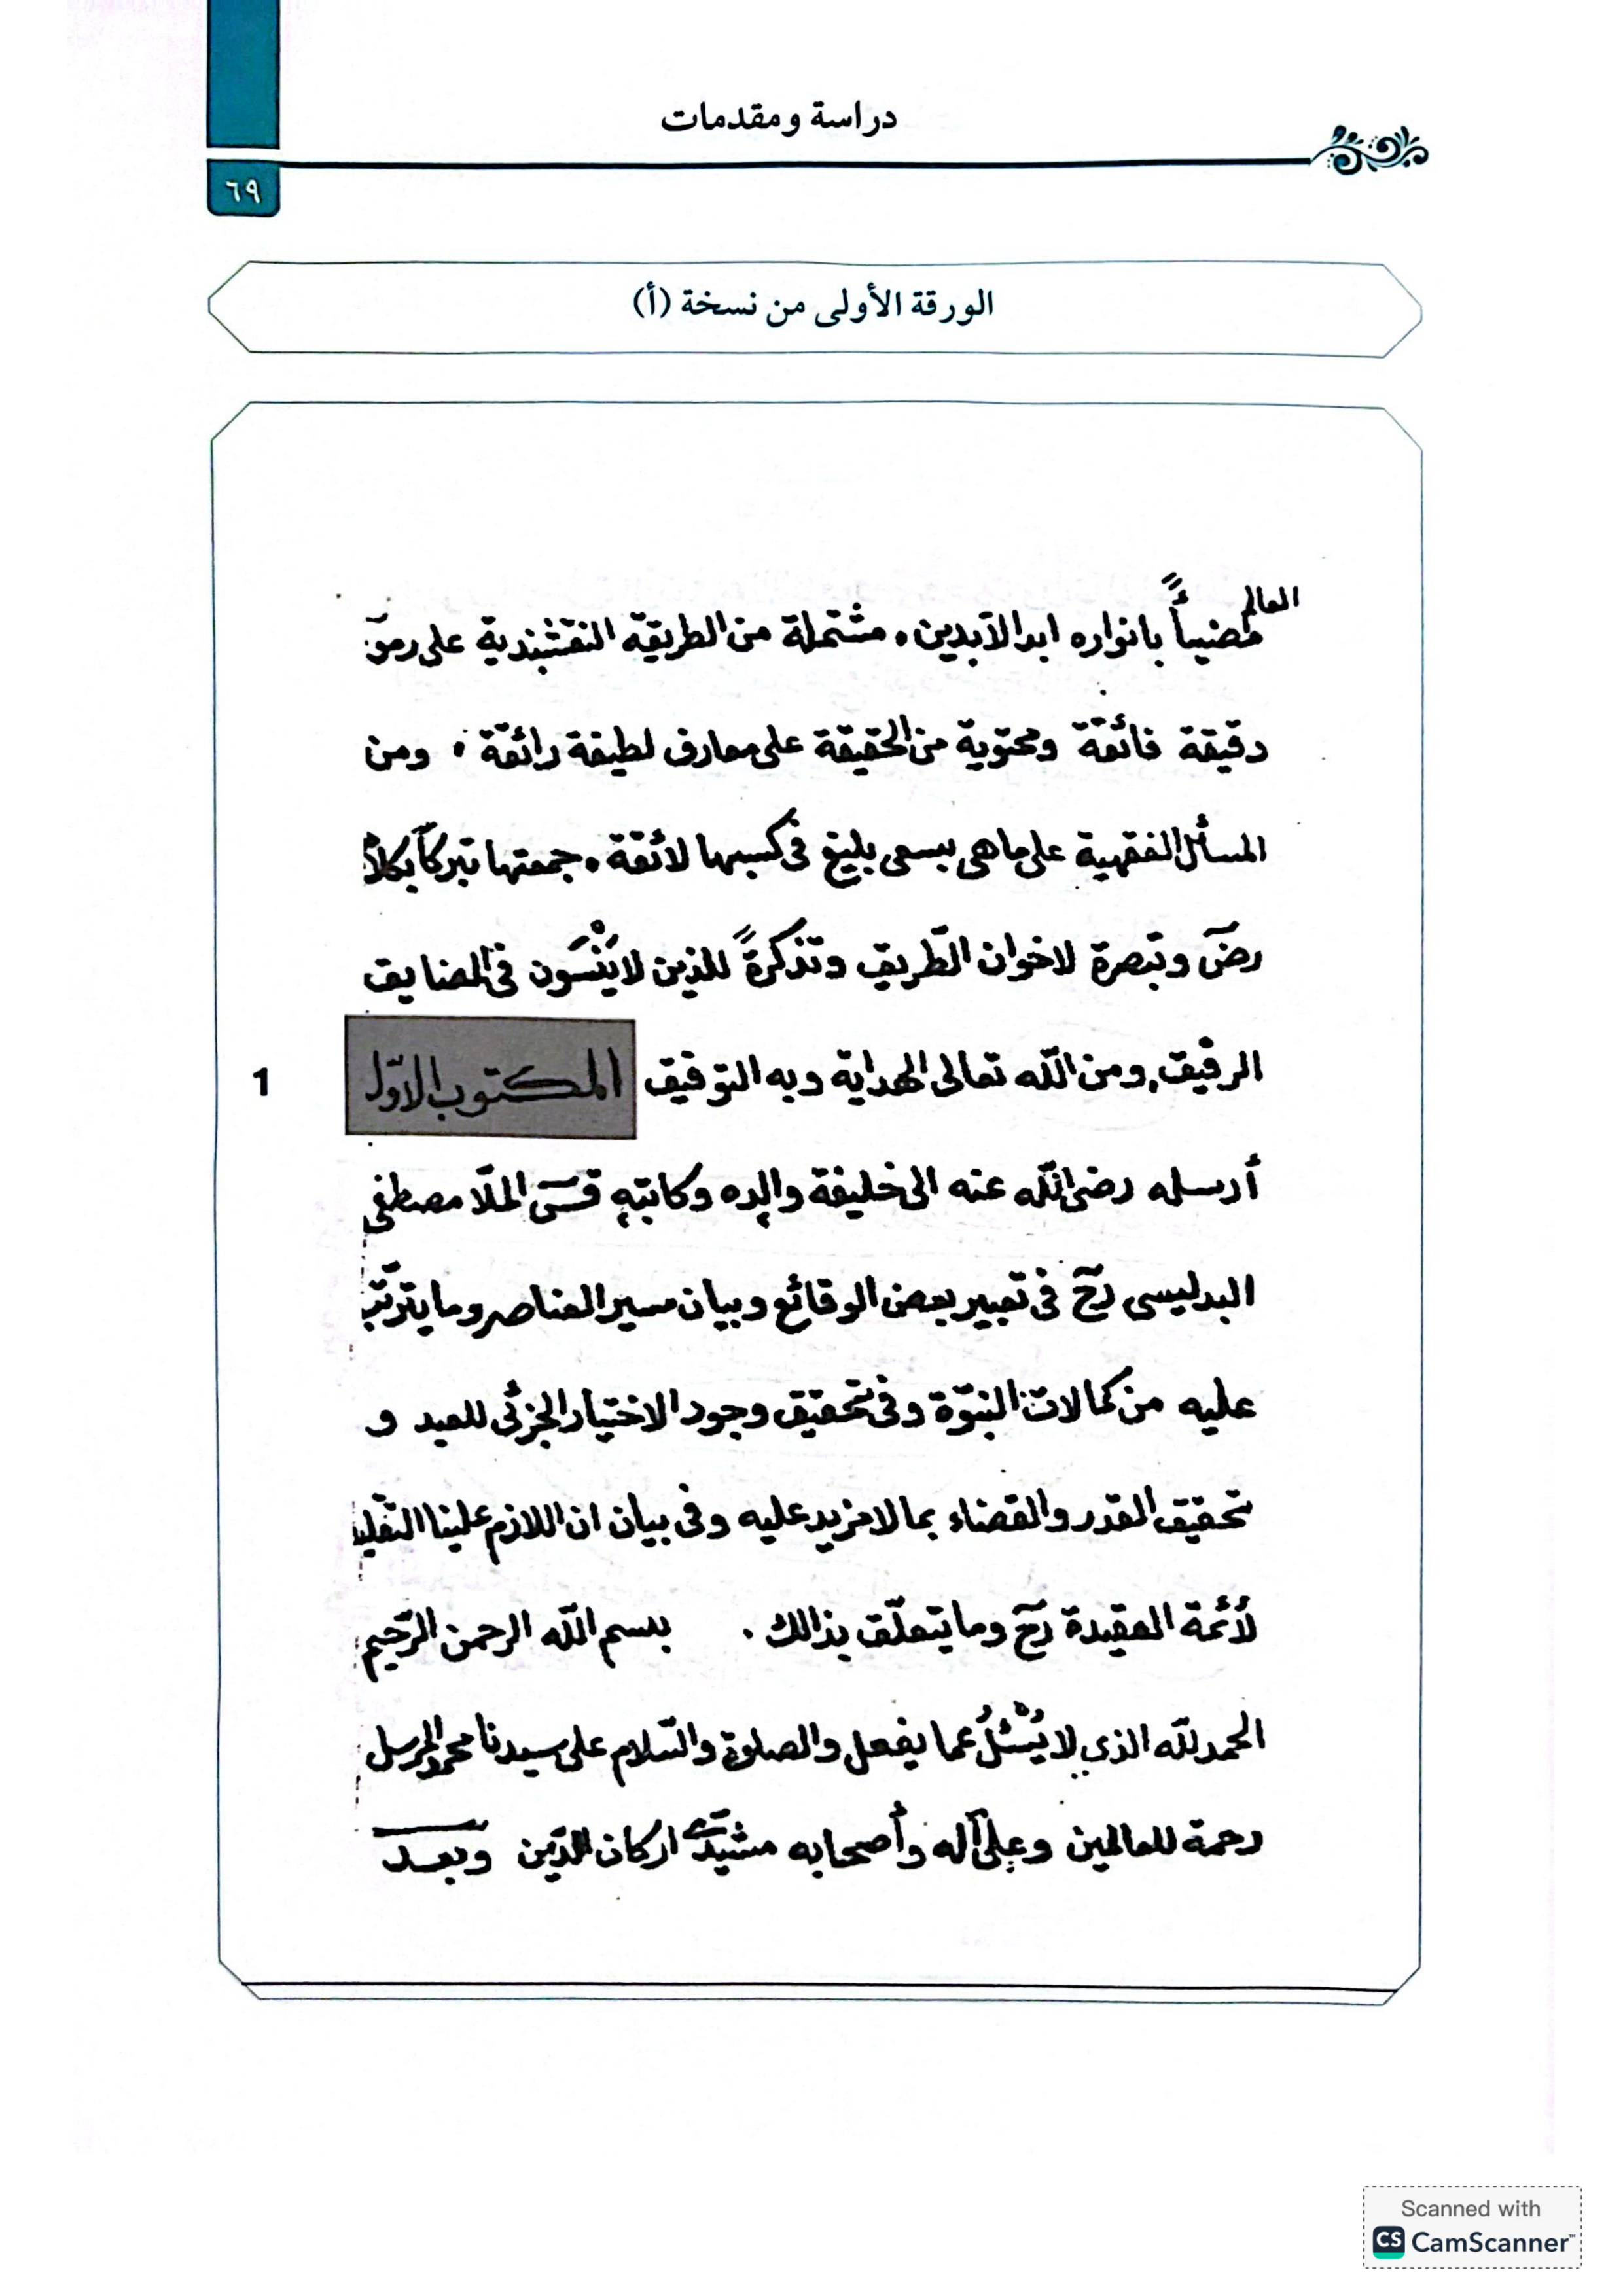 دراسة ومقدمات
٦٩
الورقة الأولى من نسخة (أ)
العالم
مضيئاً بانواره ابد الآبدين، مشتملة من الطريقة النقشبندية على رموز
دقيقة فائقة ومحتوية من الحقيقة على معارف لطيفة رائقة، ومن
المسائل الفقهية على ماهى بسعى بليغ فى كسبها لائقة، جمعتها تبركاً بكلامه
رضَ وتبصرة لاخوان الطّريق وتذكرةً للذين لا يَنْسَون فى المضايق
الرفيق، ومن الله تعالى الهداية وبه التوفيق المكتوب الاوّل
1
أرسله رضى الله عنه الى خليفة والِده وكاتبِهِ قسَ الملّا مصطفى
البدليسى رحَ فى تعبير بعض الوقائع وبيان سير العناصر وما يترتّب
عليه من كمالات النبوّة وفى تحقيق وجود الاختيار الجزئى للعبد و
تحقيق القدر والقضاء بما لا مزيد عليه وفى بيان ان اللازم علينا التقليد
لأئمة العقيدة رحَ وما يتعلّق بذالك. بسم الله الرحمن الرّحيم
الحمد لله الذى لا يُسْئلُ عما يفعل والصلوة والسّلام على سيدنا محمد المرسل
رحمة للعالمين وعلى آله وأصحابه مشيّدى اركان الدّين وبعد
Scanned with
CS CamScanner